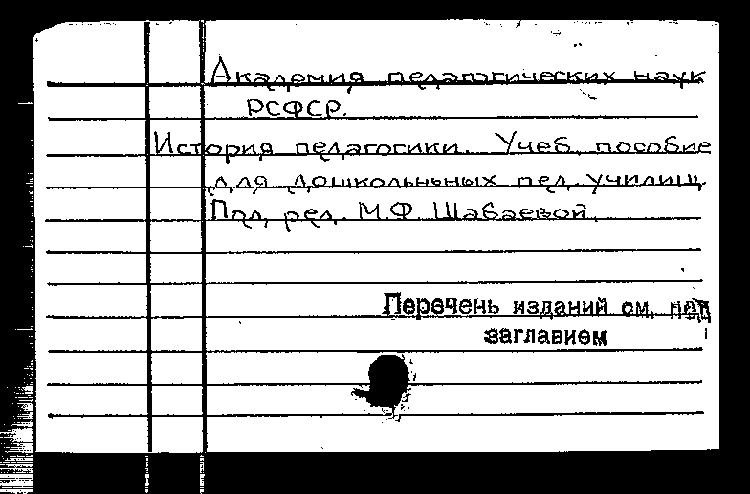 Академия педагогических наук
РСФСР.
История педагогики. Учеб. пособие
для дошкольных пед. училищ.
Под ред. М.Ф. Шабаевой.
Перечень изданий см. под
заглавием